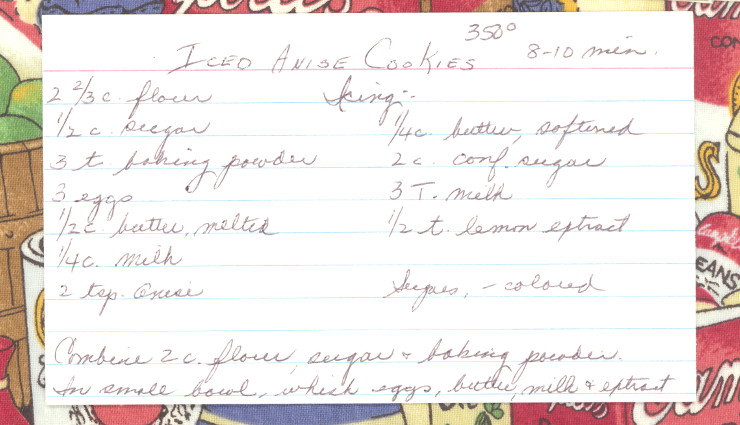 350°
ICED ANISE COOKIES 8-10 min.
2 2/3 c. flour
1/2 c. sugar
3 t. baking powder
3 eggs
1/2 c. butter, melted
1/4 c. milk
2 tsp. anise
Icing:-
1/4 c. butter, softened
2 c. conf. sugar
3 T. milk
1/2 t. lemon extract
Sugars, - colored
Combine 2 c. flour, sugar + baking powder.
In small bowl, whisk eggs, butter, milk + extract
CON
S
Campbell's
EANS
am